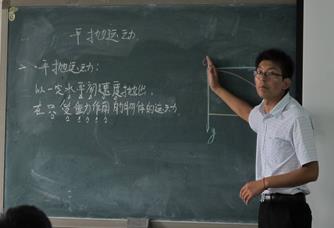 平抛运动
一、平抛运动：
以一定水平初速度抛出，
在只受重力作用的物体的运动
y